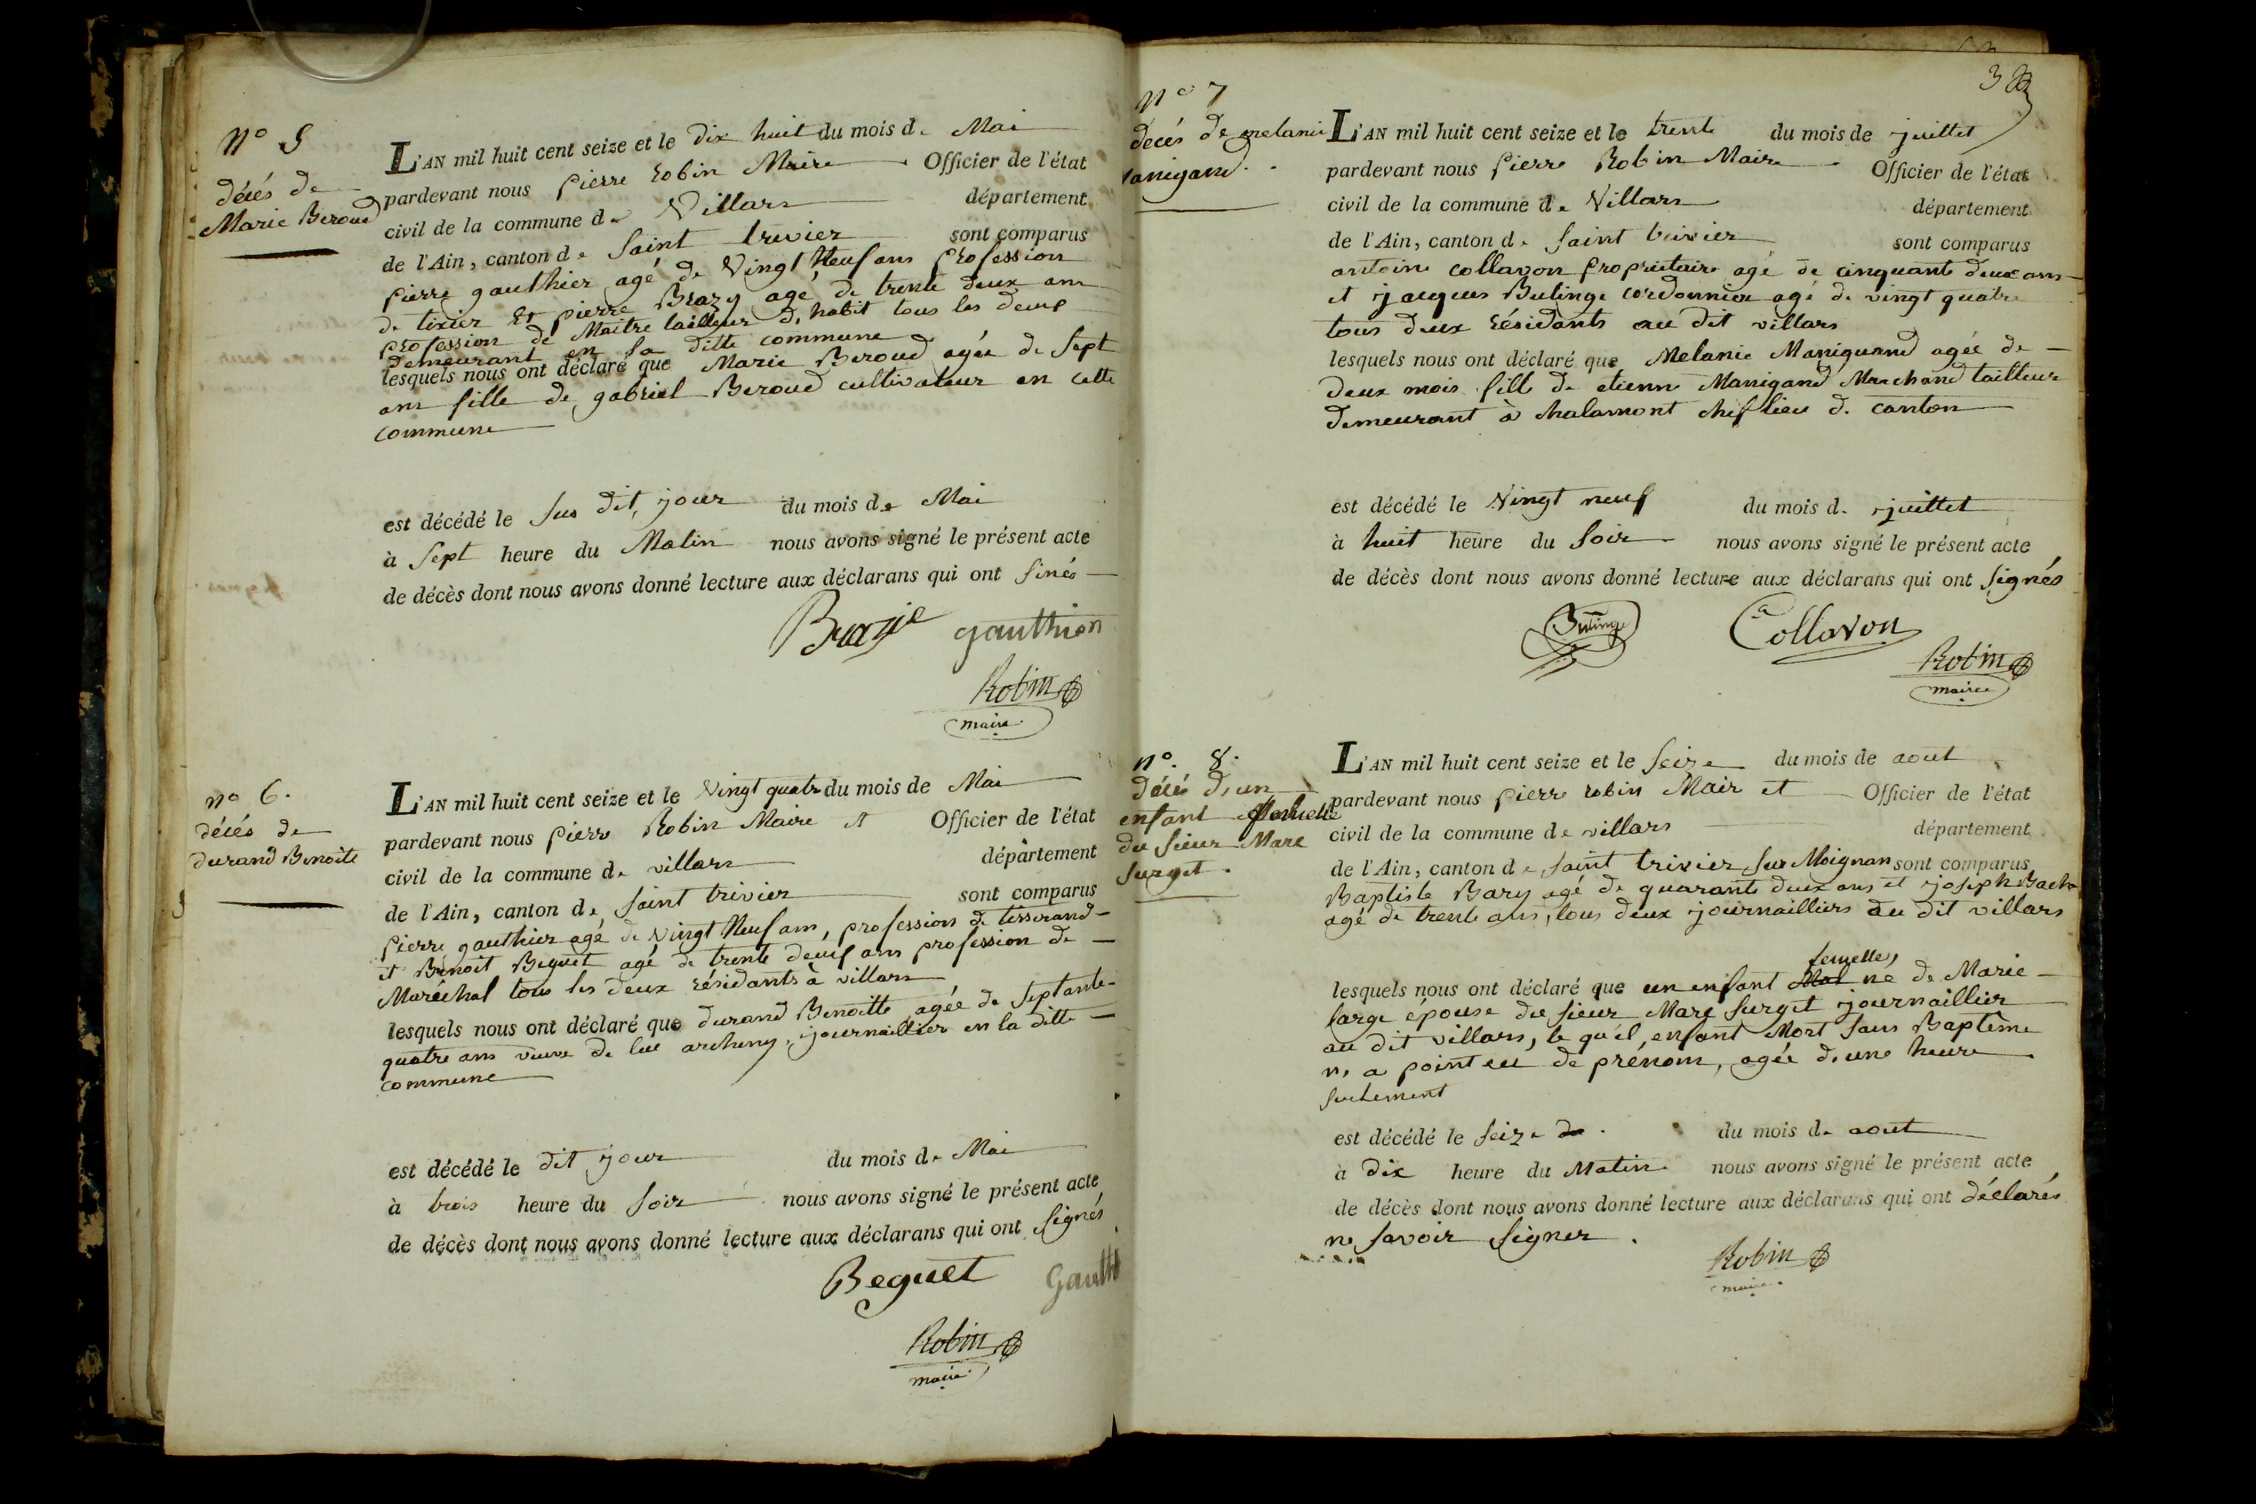 N° 5
décés de
Marie Beroud
L'AN mil huit cent seize et le dix huit du mois de Mai
pardevant nous pierre Robin Maire Officier de l'état
civil de la commune de Villars département
de l'Ain, canton de Saint trivier sont comparus
pierre gauthier agé de Vingt Neuf ans profession
de tixier Et pierre Brazy agé de trente deux ans
profession de Maitre tailleur d'habit tous les deux
Demeurant en la ditte commune
lesquels nous ont déclaré que Marie Beroud agée de Sept
ans fille de gabriel Beroud cultivateur en cette
commune
est décédé le sus dit jour du mois de Mai
à Sept heure du Matin nous avons signé le présent acte
de décès dont nous avons donné lecture aux déclarans qui ont sinés
Brazie gauthier
Robin
maire
n° 6.
décés de
durand Benoite
L'AN mil huit cent seize et le Vingt quatre du mois de Mai
pardevant nous pierre Robin Maire et Officier de l'état
civil de la commune de villars département
de l'Ain, canton de Saint trivier sont comparus
pierre gauthier agé de vingt Neuf ans, profession de tisserand
et Benoit Beguet agé de trente deux ans profession de
Maréchal tous les deux résidants à villars
lesquels nous ont déclaré que durand Benoitte agée de Septante
quatre ans veuve de luc archeny, journaillier en la ditte
commune
est décédé le dit jour du mois de Mai
à trois heure du Soir nous avons signé le présent acte
de décès dont nous avons donné lecture aux déclarans qui ont signés
Beguet Gauth
Robin
maire
N° 7
décés de melanie
manigand
L'AN mil huit cent seize et le trente du mois de juillet
pardevant nous pierre Robin Maire Officier de l'état
civil de la commune de Villars département
de l'Ain, canton de Saint trivier sont comparus
antoine Collavon propriétaire agé de cinquante deux ans
et jacques Bulinge cordonnier agé de vingt quatre
tous deux résidants au dit villars
lesquels nous ont déclaré que Melanie Manigand agée de
deux mois fille de etienne Manigand Marchand tailleur
demeurant à chalamont chef lieu de canton
est décédé le Vingt neuf du mois de juillet
à huit heure du Soir nous avons signé le présent acte
de décès dont nous avons donné lecture aux déclarans qui ont signés
Buling Collavon
Robin
maire
n°. 8.
décés d'un
enfant femelle
du sieur Marc
Surget.
L'AN mil huit cent seize et le seize du mois de aout
pardevant nous pierre robin Mair et Officier de l'état
civil de la commune de villars département
de l'Ain, canton de saint trivier sur Moignan sont comparus
Baptiste Bary agé de quarante deux ans et joseph
agé de trente ans, tous deux journailliers au dit villars
femelle,
lesquels nous ont déclaré que un enfant né de Marie
large épouse du sieur Marc Surget journaillier
au dit villars, le qu'el enfant Mort sans Baptême
n'a point eu de prénom, agée d'une heure
seulement
est décédé le seize du mois de aout
à dix heure du Matin nous avons signé le présent acte
de décès dont nous avons donné lecture aux déclarans qui ont déclarés
ne savoir signer.
Robin
maire